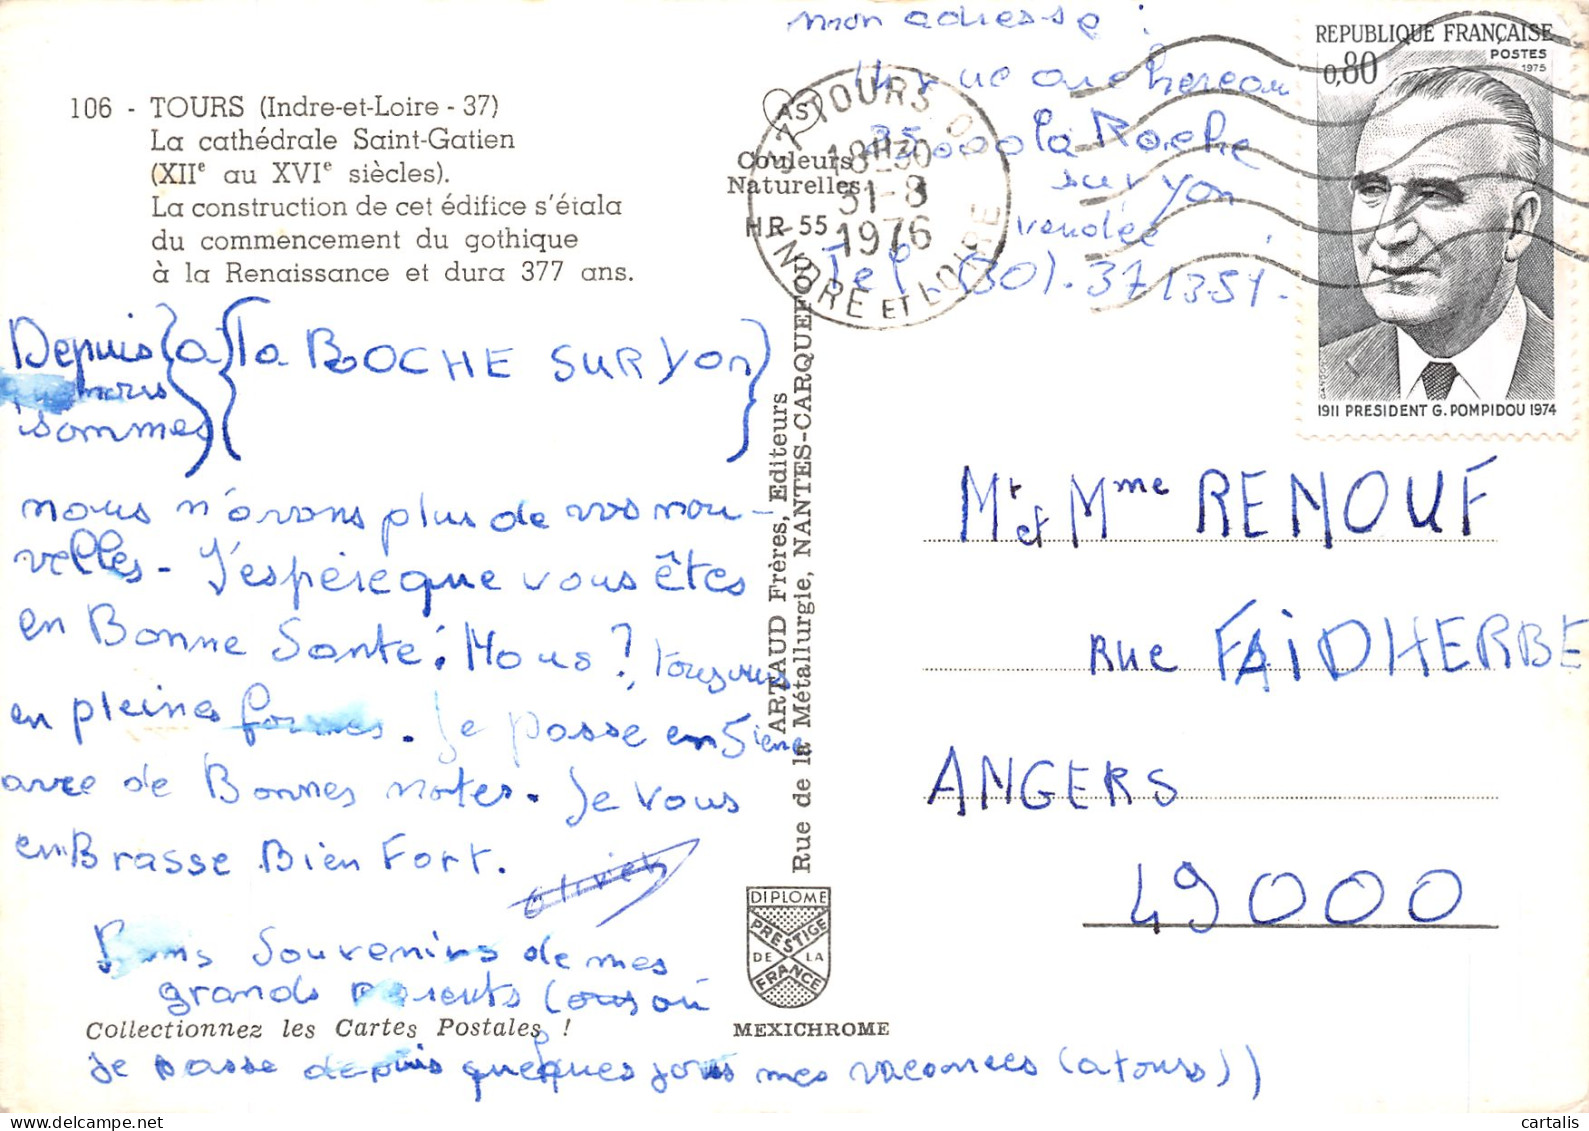 106 - TOURS (Indre-et-Loire - 37)
La cathédrale Saint-Gatien
(XIIe au XVIe siècles).
La construction de cet édifice s'étala
du commencement du gothique
à la Renaissance et dura 377 ans.
mon adresse :
rue
85.000 la Roche
sur yon
vendée
Tel. (30). 37 13.51.
AS
Couleurs
Naturelles
HR 55
37 TOURS
18H30
31-8
1976
INDRE ET LOIRE
REPUBLIQUE FRANÇAISE
POSTES
1975
0,80
1911 PRESIDENT G. POMPIDOU 1974
Depuis (a la ROCHE SUR Yon)
nous
sommes
nous n'avons plus de vos nou-
velles - J'espère que vous êtes
en Bonne Santé. Nous ?, toujours
en pleines formes. Je passe en 5ième
avec de Bonnes notes. Je vous
enBrasse Bien Fort.
Olivier
Bons Souvenirs de mes
grands parents (
je passe depuis quelques jours mes vacances (a tours))
Mr et Mme RENOUF
Rue FAIDHERBE
ANGERS
49000
ARTAUD Frères, Editeurs
Rue de la Métallurgie, NANTES-CARQUEFOU
DIPLOME
PRESTIGE
DE LA
FRANCE
MEXICHROME
Collectionnez les Cartes Postales !
cartalis